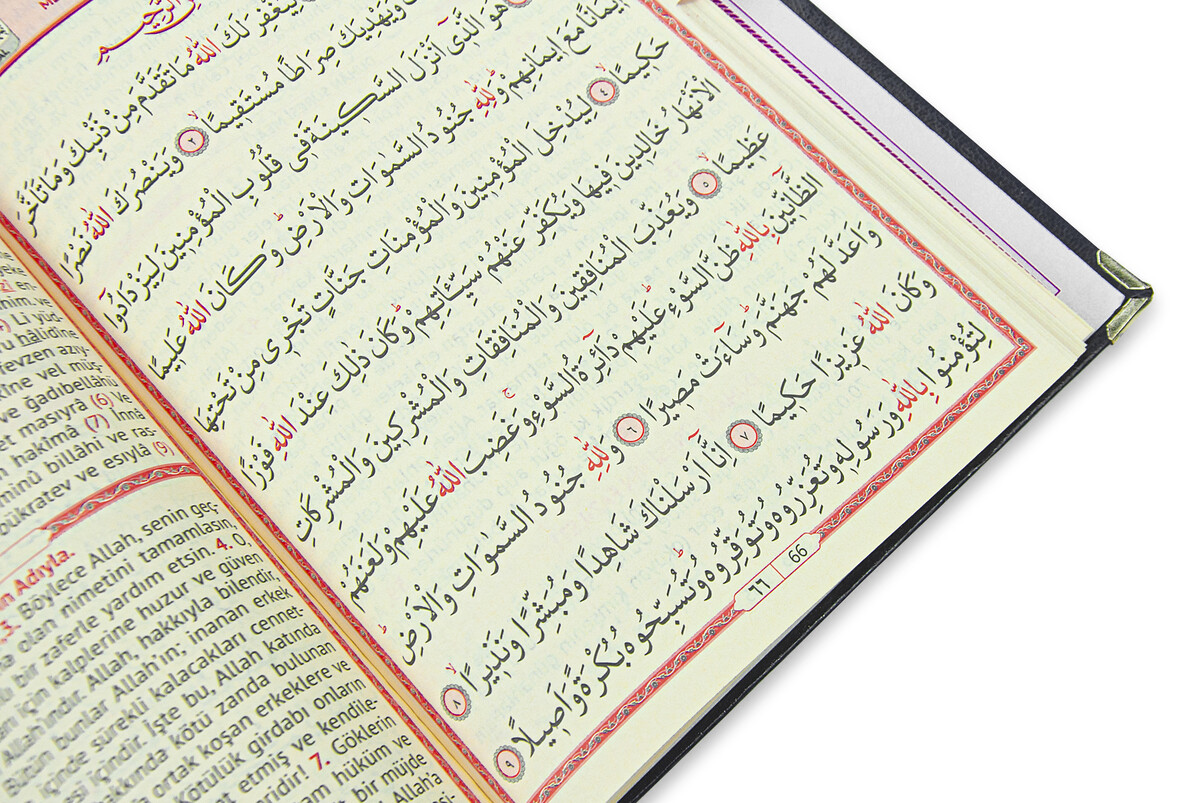 الرَّحِيمِ
لِيَغْفِرَ لَكَ اللّٰهُ مَا تَقَدَّمَ مِنْ ذَنْبِكَ وَمَا تَاَخَّرَ
وَيَهْدِيَكَ صِرَاطًا مُسْتَقِيمًا ﴿٢﴾ وَيَنْصُرَكَ اللّٰهُ نَصْرًا
هُوَ الَّذٓى اَنْزَلَ السَّكٖينَةَ فٖى قُلُوبِ الْمُؤْمِنٖينَ لِيَزْدَادُٓوا
اٖيمَانًا مَعَ اٖيمَانِهِمْ وَلِلّٰهِ جُنُودُ السَّمٰوَاتِ وَالْاَرْضِ وَكَانَ اللّٰهُ عَلٖيمًا
حَكٖيمًا ﴿٤﴾ لِيُدْخِلَ الْمُؤْمِنٖينَ وَالْمُؤْمِنَاتِ جَنَّاتٍ تَجْرٖى مِنْ تَحْتِهَا
الْاَنْهَارُ خَالِدٖينَ فٖيهَا وَيُكَفِّرَ عَنْهُمْ سَيِّـَٔاتِهِمْ وَكَانَ ذٰلِكَ عِنْدَ اللّٰهِ فَوْزًا
عَظٖيمًا ﴿٥﴾ وَيُعَذِّبَ الْمُنَافِقٖينَ وَالْمُنَافِقَاتِ وَالْمُشْرِكٖينَ وَالْمُشْرِكَاتِ
الظَّٓانّٖينَ بِاللّٰهِ ظَنَّ السَّوْءِ عَلَيْهِمْ دَٓائِرَةُ السَّوْءِ وَغَضِبَ اللّٰهُ عَلَيْهِمْ وَلَعَنَهُمْ
وَاَعَدَّ لَهُمْ جَهَنَّمَ وَسَٓاءَتْ مَصٖيرًا ﴿٦﴾ وَلِلّٰهِ جُنُودُ السَّمٰوَاتِ وَالْاَرْضِ
وَكَانَ اللّٰهُ عَزٖيزًا حَكٖيمًا ﴿٧﴾ اِنَّٓا اَرْسَلْنَاكَ شَاهِدًا وَمُبَشِّرًا وَنَذٖيرًا ﴿٨﴾
لِتُؤْمِنُوا بِاللّٰهِ وَرَسُولِهٖ وَتُعَزِّرُوهُ وَتُوَقِّرُوهُ وَتُسَبِّحُوهُ بُكْرَةً وَاَصٖيلًا ﴿٩﴾
٦٦ 66
en-
him. ve
Li yüd
hâlidîne
fevzen azıy-
kîne vel müş-
ve ğadıbellâhü
et masıyrâ (6) Ve
hakîmâ (7) İnnâ
minû billâhi ve ras-
bükratev ve esıylâ (9)
Adıyla.
3. Böylece Allah, senin geç-
olan nimetini tamamlasın,
bir zaferle yardım etsin. 4. O,
için kalplerine huzur ve güven
Allah'ındır. Allah, hakkıyla bilendir,
Bütün bunlar Allah'ın; inanan erkek
içinde sürekli kalacakları cennet-
içindir. İşte bu, Allah katında
hakkında kötü zanda bulunan
ortak koşan erkeklere ve
Kötülük girdabı onların
etmiş ve kendile-
7. Göklerin
hüküm ve
bir müjde
Allah'a